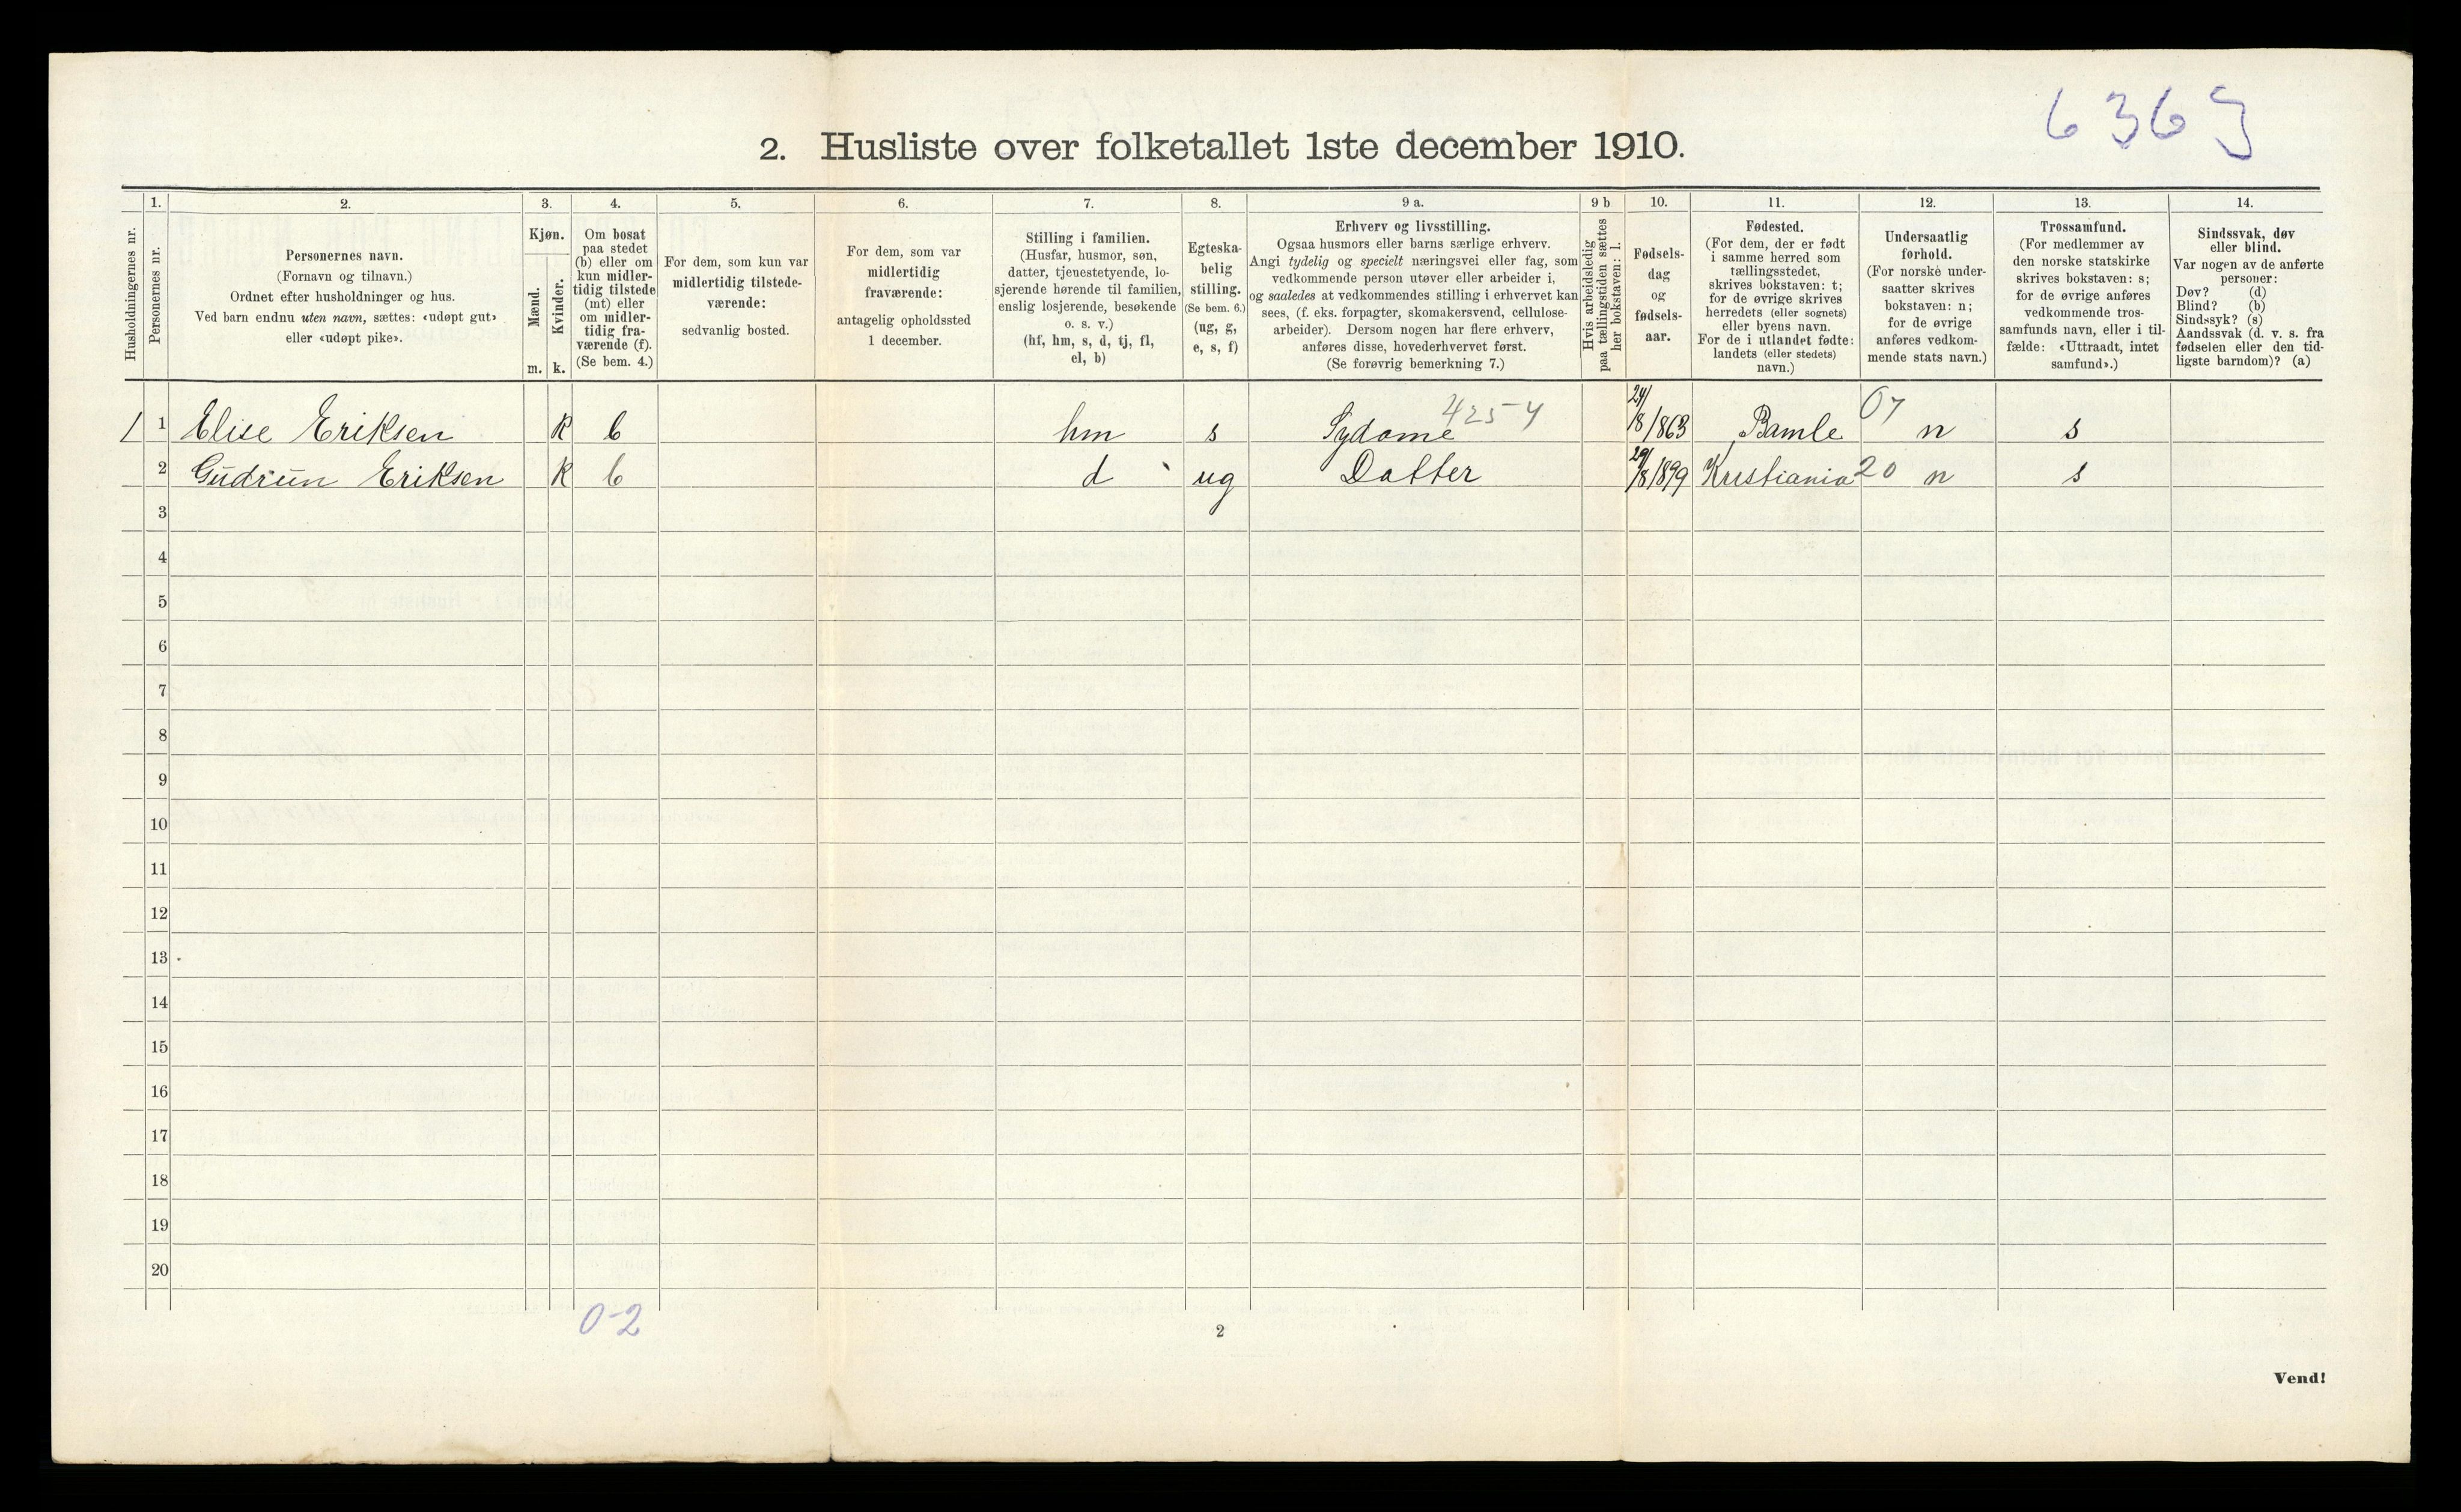 6363
2. Husliste over folketallet 1ste december 1910.
Husholdningernes nr.
1.
Personernes nr.
2.
Personernes navn.
(Fornavn og tilnavn.)
Ordnet efter husholdninger og hus.
Ved barn endnu uten navn, sættes: «udøpt gut»
eller «udøpt pike».
3.
Kjøn.
Mænd.
Kvinder.
m. k.
4.
Om bosat
paa stedet
(b) eller om
kun midler-
tidig tilstede
(mt) eller
om midler-
tidig fra-
værende (f).
(Se bem. 4.)
5.
For dem, som kun var
midlertidig tilstede-
værende:
sedvanlig bosted.
6.
For dem, som var
midlertidig
fraværende:
antagelig opholdssted
1 december.
7.
Stilling i familien.
(Husfar, husmor, søn,
datter, tjenestetyende, lo-
sjerende hørende til familien,
enslig losjerende, besøkende
o. s. v.)
(hf, hm, s, d, tj, fl,
el, b)
8.
Egteska-
belig
stilling.
(Se bem. 6.)
(ug, g,
e, s, f)
9 a.
Erhverv og livsstilling.
Ogsaa husmors eller barns særlige erhverv.
Angi tydelig og specielt næringsvei eller fag, som
vedkommende person utøver eller arbeider i,
og saaledes at vedkommendes stilling i erhvervet kan
sees, (f. eks. forpagter, skomakersvend, cellulose-
arbeider). Dersom nogen har flere erhverv,
anføres disse, hovederhvervet først.
(Se forøvrig bemerkning 7.)
9 b
Hvis arbeidsledig
paa tællingstiden sættes
her bokstaven: l.
10.
Fødsels-
dag
og
fødsels-
aar.
11.
Fødested.
(For dem, der er født
i samme herred som
tællingsstedet,
skrives bokstaven: t;
for de øvrige skrives
herredets (eller sognets)
eller byens navn.
For de i utlandet fødte:
landets (eller stedets)
navn.)
12.
Undersaatlig
forhold.
(For norske under-
saatter skrives
bokstaven: n;
for de øvrige
anføres vedkom-
mende stats navn.)
13.
Trossamfund.
(For medlemmer av
den norske statskirke
skrives bokstaven: s;
for de øvrige anføres
vedkommende tros-
samfunds navn, eller i til-
fælde: «Uttraadt, intet
samfund».)
14.
Sindssvak, døv
eller blind.
Var nogen av de anførte
personer:
Døv? (d)
Blind? (b)
Sindssyk? (s)
Aandssvak (d. v. s. fra
fødselen eller den tid-
ligste barndom)? (a)
1 1 Elise Eriksen K b hm s Sydame 425-4 24/8/863 Bamle 07 n s
2 Gudrun Eriksen K b d ug Datter 29/8/899 Kristiania 20 n s
3
4
5
6
7
8
9
10
11
12
13
14
15
16
17
18
19
20
0-2
2
Vend!